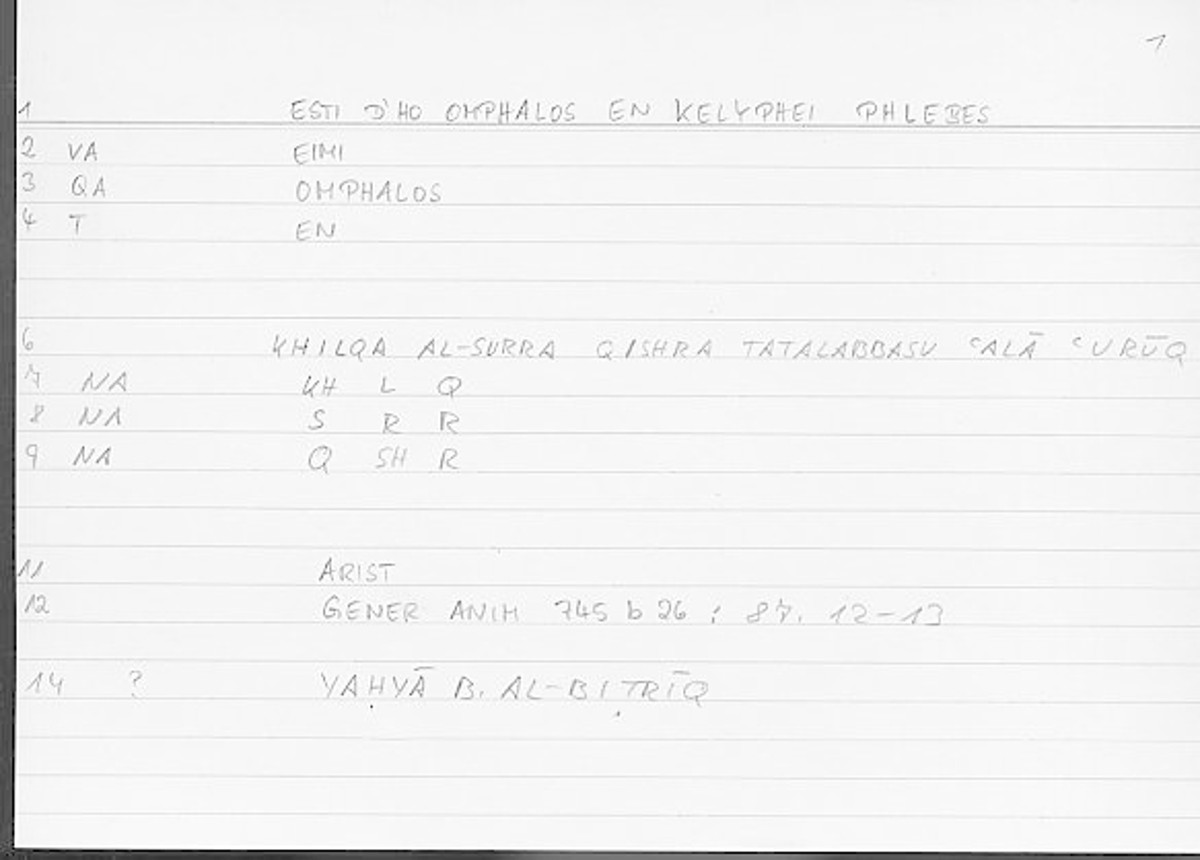 1
1 ESTI D'HO OMPHALOS EN KELYPHEI PHLEBES
2 VA EIMI
3 QA OMPHALOS
4 T EN
6 KHILQA AL-SURRA QISHRA TATALABBASU ʿALĀ ʿURŪQ
7 NA KH L Q
8 NA S R R
9 NA Q SH R
11 ARIST
12 GENER ANIM 745 b 26 ; 87. 12-13
14 ? YAḤYĀ B. AL-BIṬRĪQ